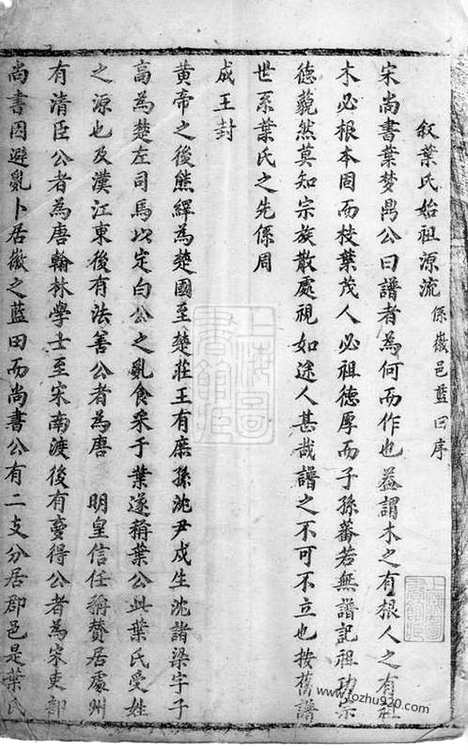 叙葉氏始祖源流 係徽邑藍田序
宋尚書葉夢鼎公曰譜者為何而作也蓋謂木之有根人之有祖
木必根本固而枝葉茂人必祖德厚而子孫蕃若無譜記祖功宗
德藐然莫知宗族散處視如途人甚哉譜之不可不立也按舊譜
世系葉氏之先係周
成王封
黄帝之後熊繹為楚國至楚莊王有庶孫沈尹戍生沈諸梁字子
高為楚左司馬以定白公之亂食采于葉遂稱葉公此葉氏受姓
之源也及漢江東後有法善公者為唐 明皇信任稱贊居處州
有清臣公者為唐翰林學士至宋南渡後有夢得公者為宋吏部
尚書因避亂卜居徽之藍田而尚書公有二支分居郡邑是葉氏
上海圖書館藏
www.fozhu920.com